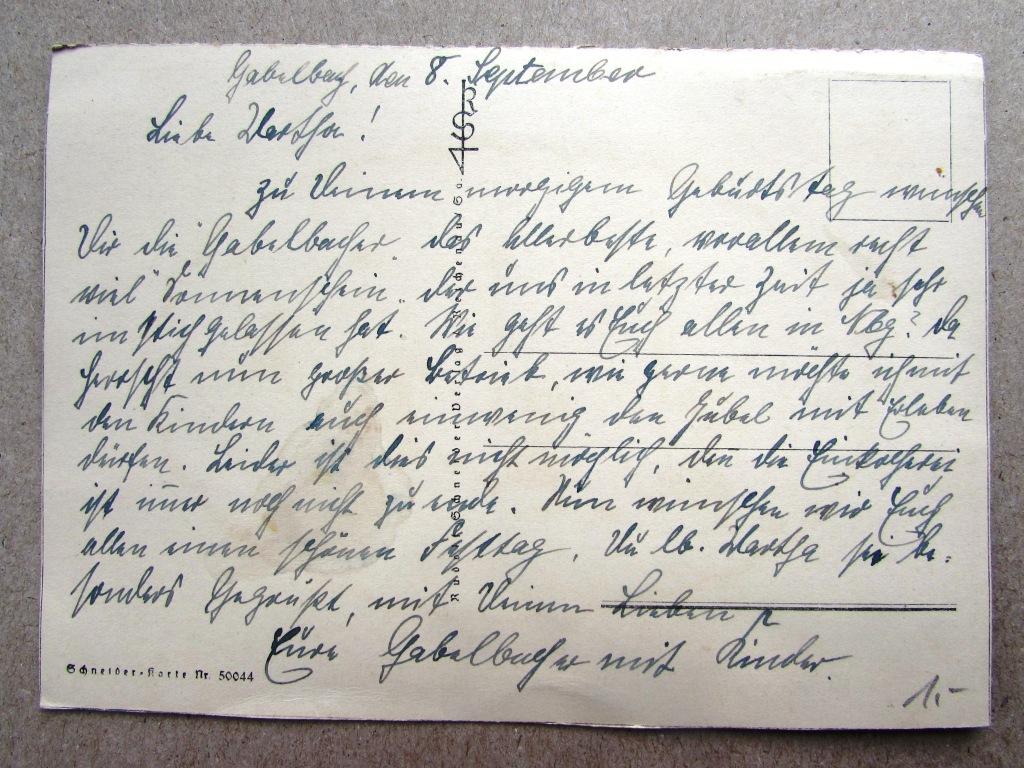 Gabelbach, den 8. September
Liebe Martha!
zu Deinem morgigem Geburtstag wünschen
Dir die Gabelbacher das allerbeste, vorallem recht
viel Sonnenschein der uns in letzter Zeit ja sehr
im Stich gelassen hat. Wie geht es Euch allen in Nbg? Da
herrscht nun großer Betrieb, wie gerne möchte ich mit
den Kindern auch einwenig den Jubel mit Erleben
dürfen. Leider ist dies nicht möglich, den die Einkocherei
ist imer noch nicht zu ende. Nun wünschen wir Euch
allen einen schönen Festtag. Du lb. Martha sei be-
sonders Gegrüßt, mit Deinen Lieben
Eure Gabelbacher mit Kinder.
Schneider-Karte Nr. 50044
1.-